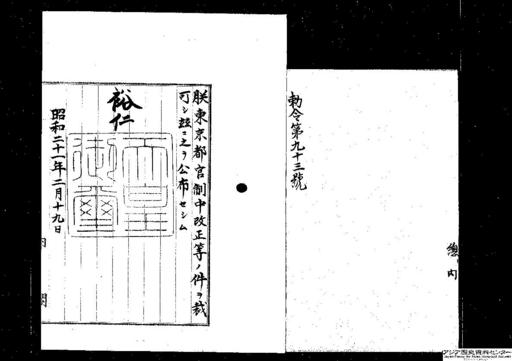 勅令第九十三號
總内
朕東京都官制中改正等ノ件ヲ裁
可シ玆ニ之ヲ公布セシム
裕仁
天皇御璽
昭和二十一年二月十九日
内閣
アジア歴史資料センター